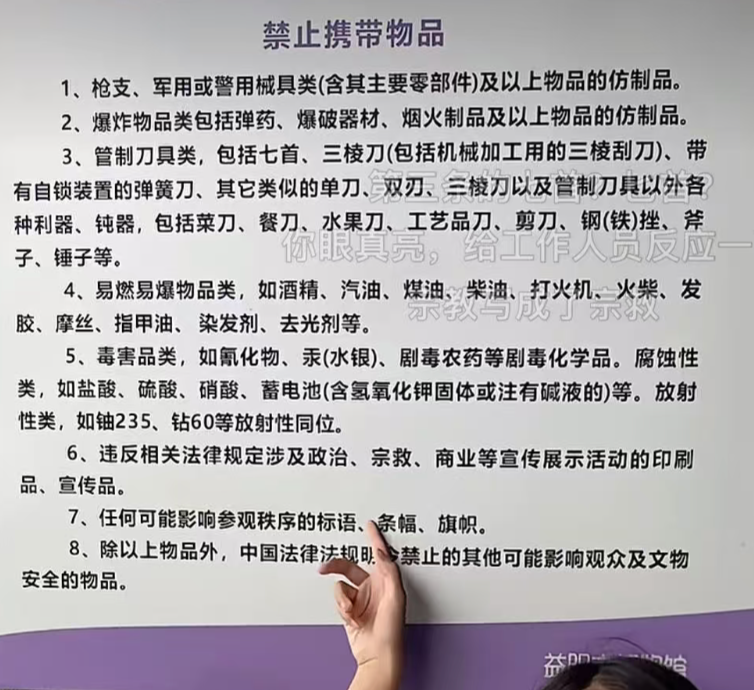 禁止携带物品
1、枪支、军用或警用械具类(含其主要零部件)及以上物品的仿制品。
2、爆炸物品类包括弹药、爆破器材、烟火制品及以上物品的仿制品。
3、管制刀具类，包括七首、三棱刀(包括机械加工用的三棱刮刀)、带
有自锁装置的弹簧刀、其它类似的单刀、双刃、三棱刀以及管制刀具以外各
种利器、钝器，包括菜刀、餐刀、水果刀、工艺品刀、剪刀、钢(铁)挫、斧
子、锤子等。
4、易燃易爆物品类，如酒精、汽油、煤油、柴油、打火机、火柴、发
胶、摩丝、指甲油、染发剂、去光剂等。
5、毒害品类，如氰化物、汞(水银)、剧毒农药等剧毒化学品。腐蚀性
类，如盐酸、硫酸、硝酸、蓄电池(含氢氧化钾固体或注有碱液的)等。放射
性类，如铀235、钴60等放射性同位。
6、违反相关法律规定涉及政治、宗救、商业等宣传展示活动的印刷
品、宣传品。
7、任何可能影响参观秩序的标语、条幅、旗帜。
8、除以上物品外，中国法律法规明令禁止的其他可能影响观众及文物
安全的物品。
第三条的七首？七首？
你眼真亮，给工作人员反应一
宗教写成了宗救